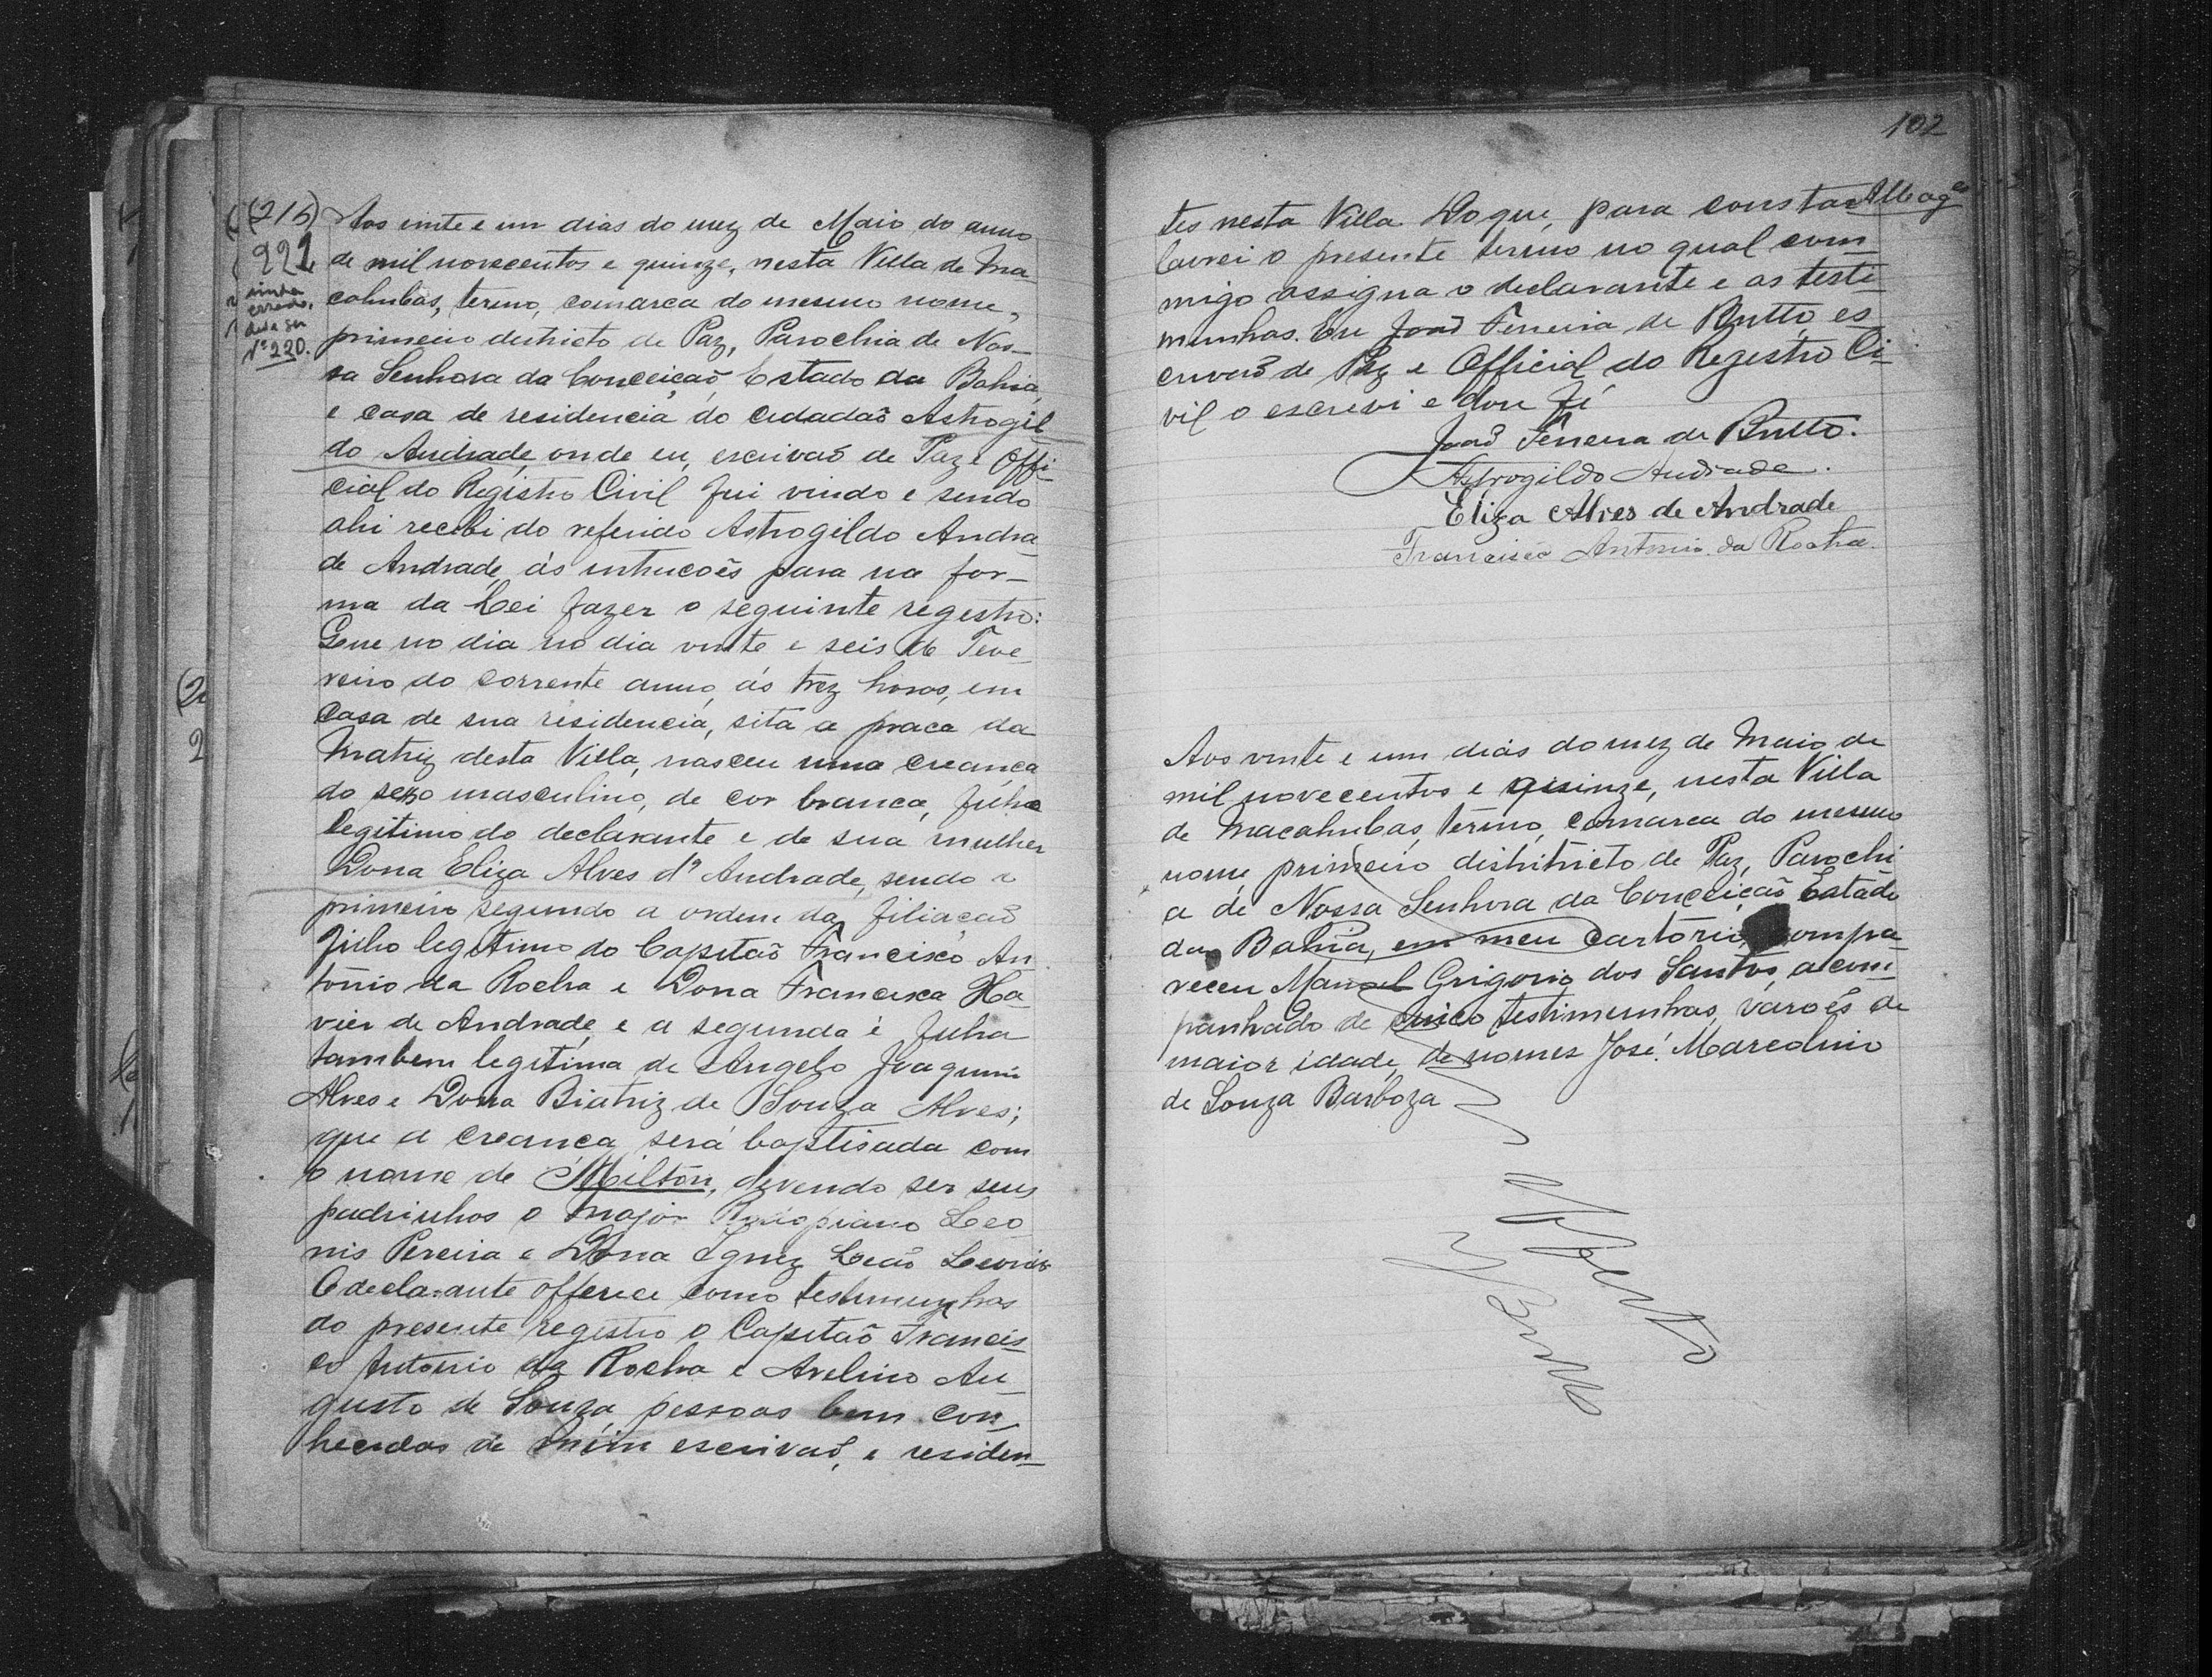 (215)
221
errado,
deve ser
Nº 220.
Aos vinte e um dias do mez de Maio do anno
de mil novecentos e quinze, nesta Villa de Ma
cahubas, termo, comarca do mesmo nome,
primeiro destricto de Paz, Parochia de Nos-
sa Senhora da Conceição, Estado da Bahia,
e casa de residencia do cidadaõ Astrogil
do Andrade, onde eu, escrivaõ de Paz e Offi-
cial do Registro Civil fui vindo e sendo
ahi recebi do referido Astrogildo Andra
de Andrade, ás intrucoẽs para na for-
ma da Lei fazer o seguinte registro:
Que no dia no dia vinte e seis de Feve
reiro do corrente anno, ás trez horas, em
casa de sua residencia, sita a praca da
Matriz desta Villa, nasceu uma creança
do sexo masculino, de cor branca, filho
legitimo do declarante e de sua mulher
Dona Eliza Alves d' Andrade, sendo o
primeiro segundo a ordem da filiacaõ
filho legitimo do Capitaõ Francisco An
tonio da Rocha e Dona Francisca Xa-
vier de Andrade, e a segunda é filha
tambem legitima de Angelo Joaquim
Alves e Dona Biatriz de Souza Alves;
que a creanca será baptisada com
o nome de Milton, devendo ser seus
padrinhos o Major Leo
nis Pereira e Dona Ignez Leaõ
O declarante offerece como testimunhas
do presente registro o Capitaõ Francis
co Antonio da Rocha e Avelino Au
gusto de Souza, pessoas bem con
hecidas de mim escrivaõ, e residen
102
tes nesta Villa Do que, para constar
lavrei o presente termo no qual com
migo assigna o declarante e as teste
munhas. Eu Joaõ Ferreira de Britto, es
crivaõ de Paz e Official do Registro Ci-
vil o escrevi e dou fé
Joaõ Ferreira de Britto.
Astrogildo Andrade.
Eliza Alves de Andrade
Francisco Antonio da Rocha.
Aos vinte e um dias do mez de Maio de
mil novecentos e quinze, nesta Villa
de Macahubas, termo, comarca do mesmo
nome primeiro distritricto de Paz, Parochi
a de Nossa Senhora da Conceição Estado
da Bahia, em meu Cartorio, compa
receu Manoel Grigorio dos Santos, acom
panhado de cinco testimunhas, varoẽs de
maior idade, de nomes José Marcolino
de Souza Barboza